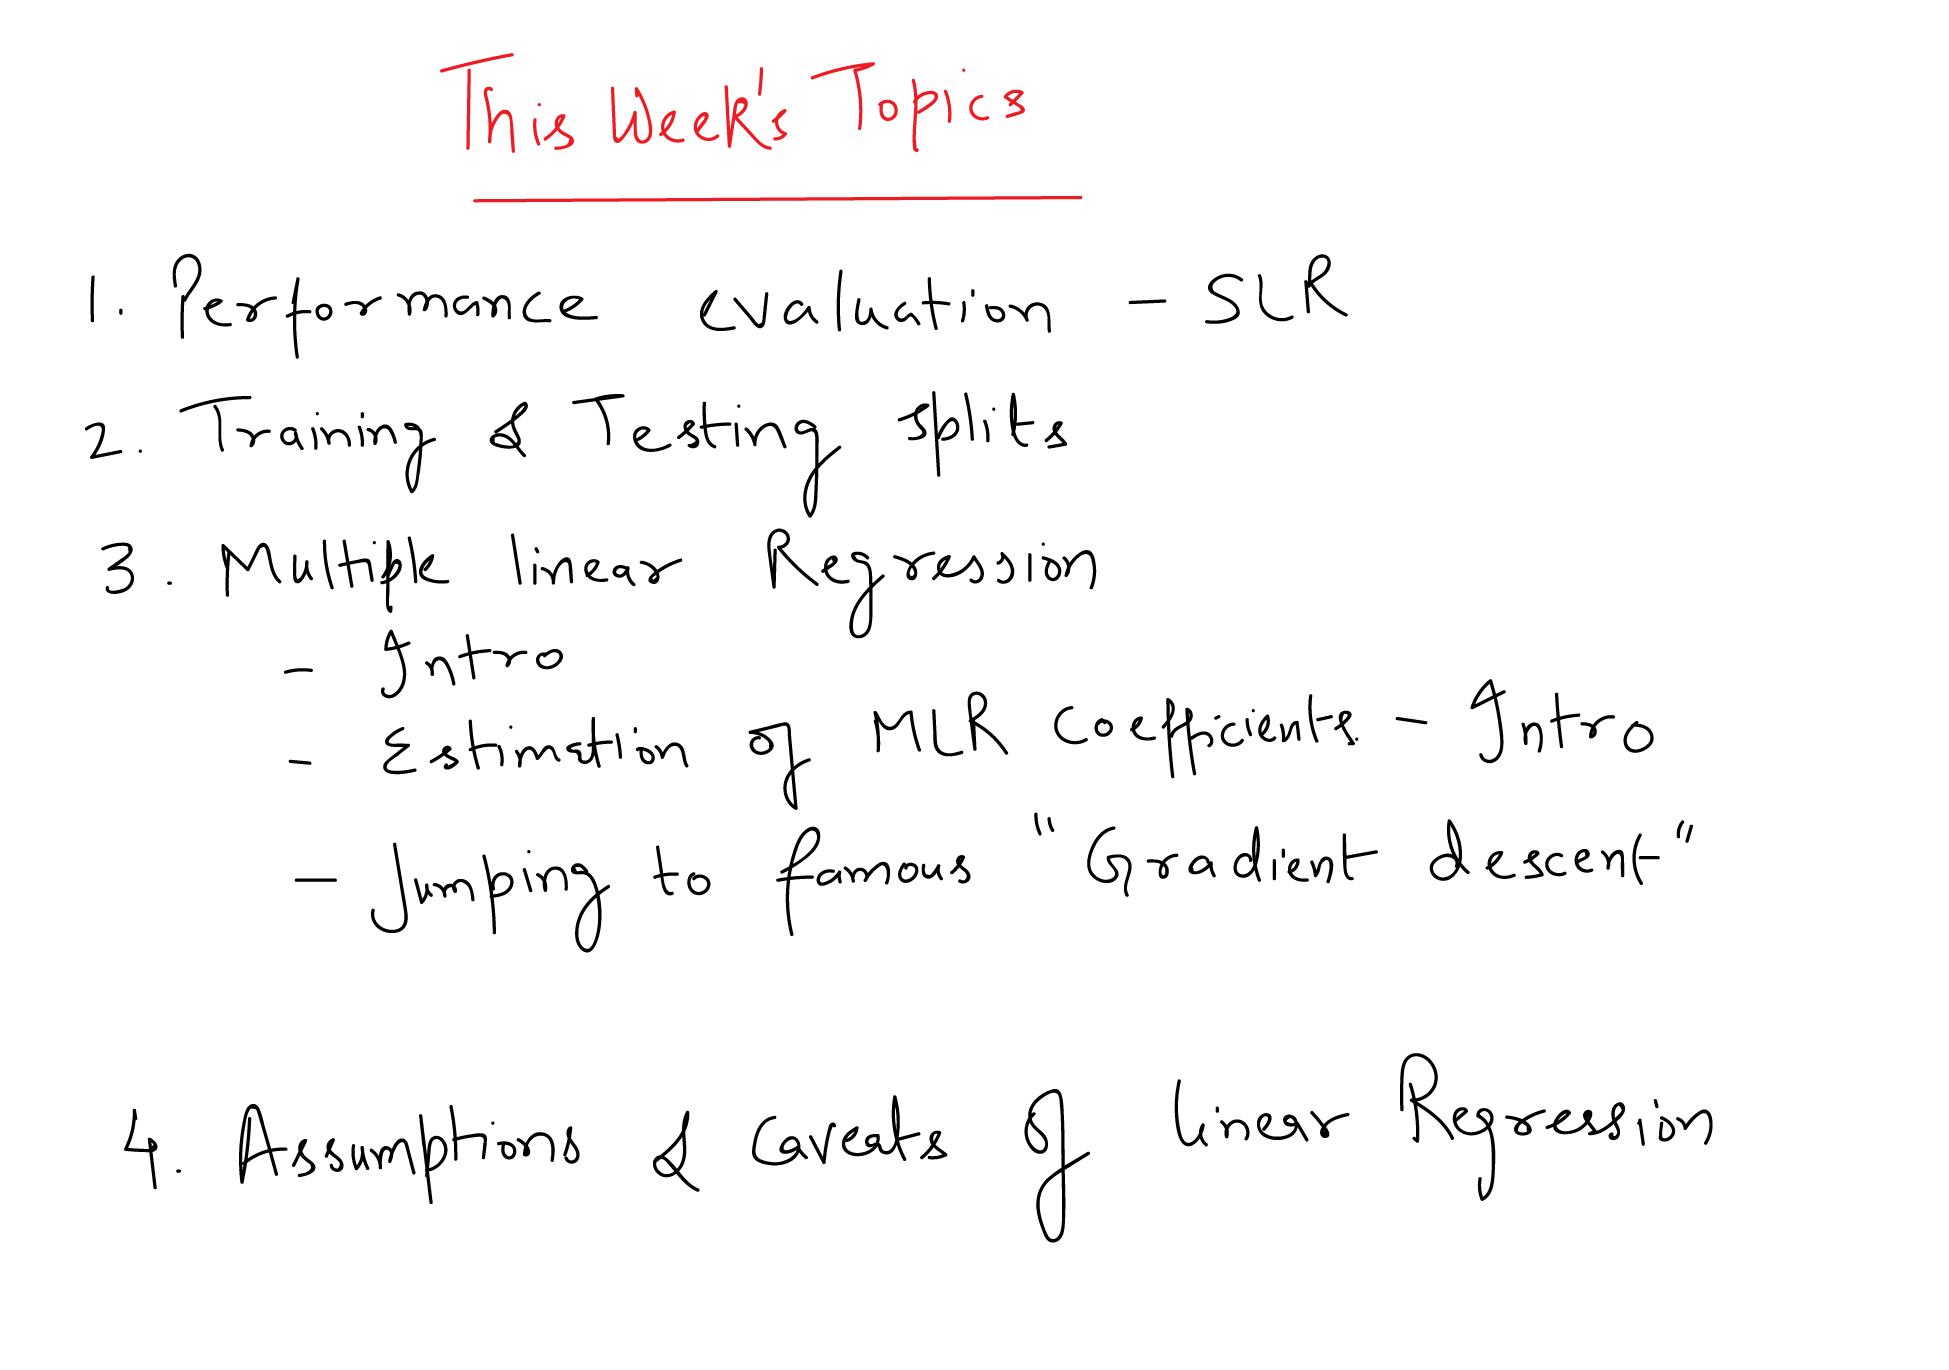 This Week's Topics
1. Performance evaluation - SLR
2. Training & Testing splits
3. Multiple linear Regression
- Intro
- Estimation of MLR Coefficients - Intro
- Jumping to famous "Gradient descent"
4. Assumptions & Caveats of linear Regression